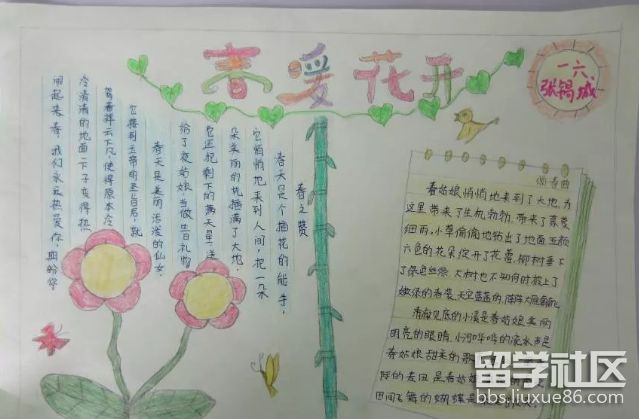 春暖花开
一六
张锡城
春之赞
春天是个插花的能手,
它悄悄地来到人间,把一朵
朵美丽的花插满了大地.
它还把剩下的满天星送
给了夜姑娘当做昔日礼物
春天是美丽活泼的仙女.
它接到玉帝的圣旨后,就
驾着祥云下凡,使得原本冷
冷清清的地面一下子变得热
闹起来.春,我们永远热爱你,期盼你
春姑娘悄悄地来到了大地,为
这里带来了生机勃勃,带来了蒙蒙
细雨,小草偷偷地钻出了地面,五颜
六色的花朵绽开了花蕾,柳树垂下
了绿色丝绦.大树也不知何时披上了
嫩绿的春装,天空蓝蓝的,阵阵大雁
清澈见底的小溪是春姑娘美丽
明亮的眼睛,小河哗哗的流水声是
春姑娘甜美的
际的麦田是春姑娘
田间飞舞的蝴蝶是
留学社区
bbs.liuxue86.com